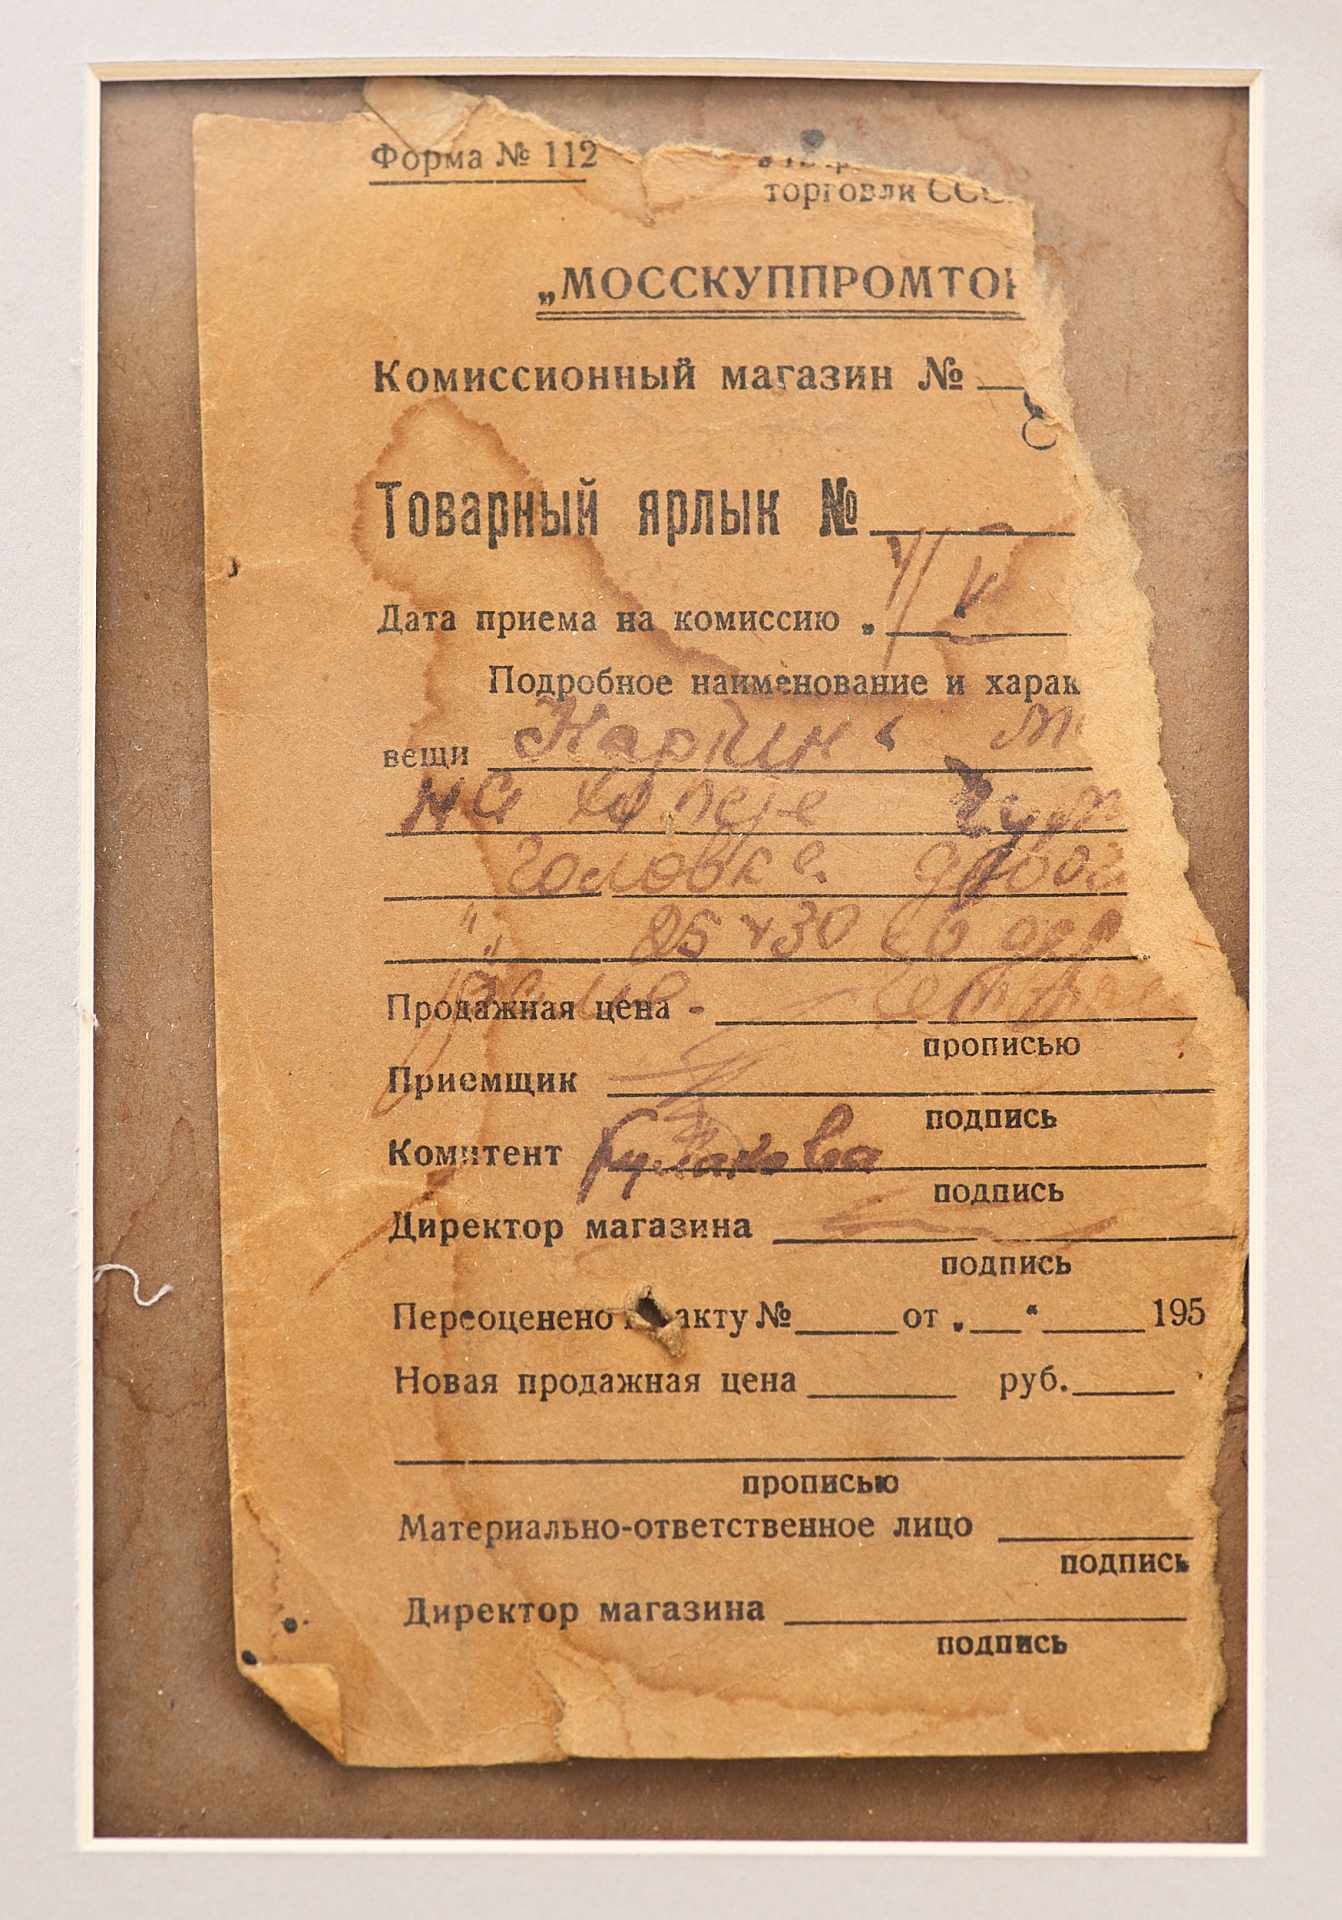 Форма № 112
торговли ССС
„МОССКУППРОМТОР
Комиссионный магазин №
8
Товарный ярлык №
Дата приема на комиссию „
Подробное наименование и харак
вещи Картин
на холсте
головка
25 х 30 в
раме
Продажная цена -
прописью
Приемщик
подпись
Комитент
подпись
Директор магазина
подпись
Переоценено акту № от „ “ 195
Новая продажная цена руб.
прописью
Материально-ответственное лицо
подпись
Директор магазина
подпись